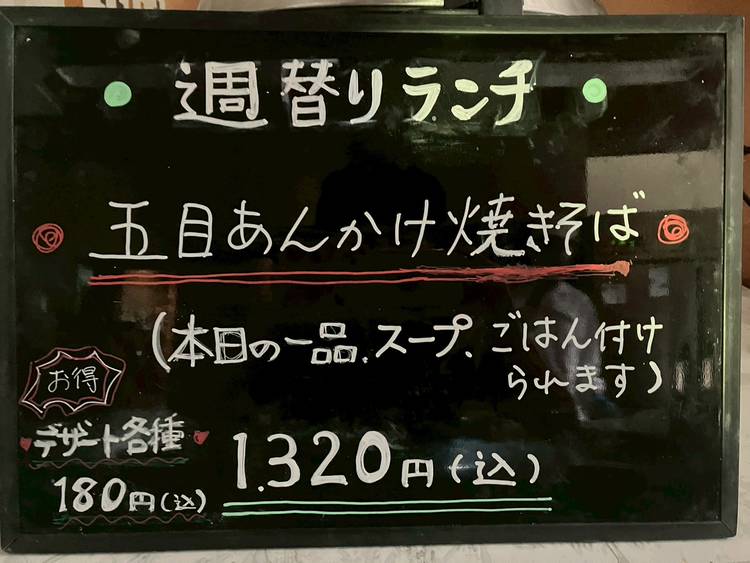 週替りランチ
五目あんかけ焼きそば
(本日の一品、スープ、ごはん付け
られます)
お得
デザート各種
180円(込)
1.320円(込)